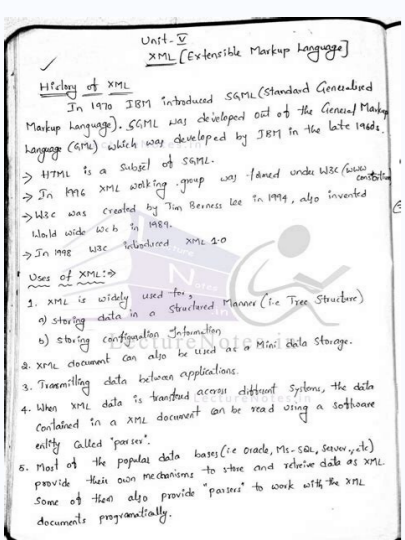 Unit-V
XML [Extensible Markup Language]
History of XML
In 1970 IBM introduced SGML (Standard Generalised
Markup Language). SGML was developed out of the General Markup
Language (GML) which was developed by IBM in the late 1960s.
→ HTML is a Subset of SGML.
→ In 1996 XML wolking group was formed under W3C (WWW
consortium
→ W3C was created by Tim Berness lee in 1994, also invented
World Wide Web in 1989.
→ In 1998 W3C introduced XML 1.0
Uses of XML:⇒
1. XML is widely used for,
a) storing data in a Structured Manner (i.e Tree Structure)
b) storing configuration Information
LectureNotes.in
2. XML document can also be used as a Mini data Storage.
3. Transmitting data between applications.
4. When XML data is across different Systems, the data
contained in a XML document can be read using a software
entity called "parser".
5. Most of the popular data bases (i.e Oracle, MS-SQL, Server, etc)
provide their own mechanisms to store and retreive data as XML
Some of them also provide "parsers" to work with the XML
documents programatically.